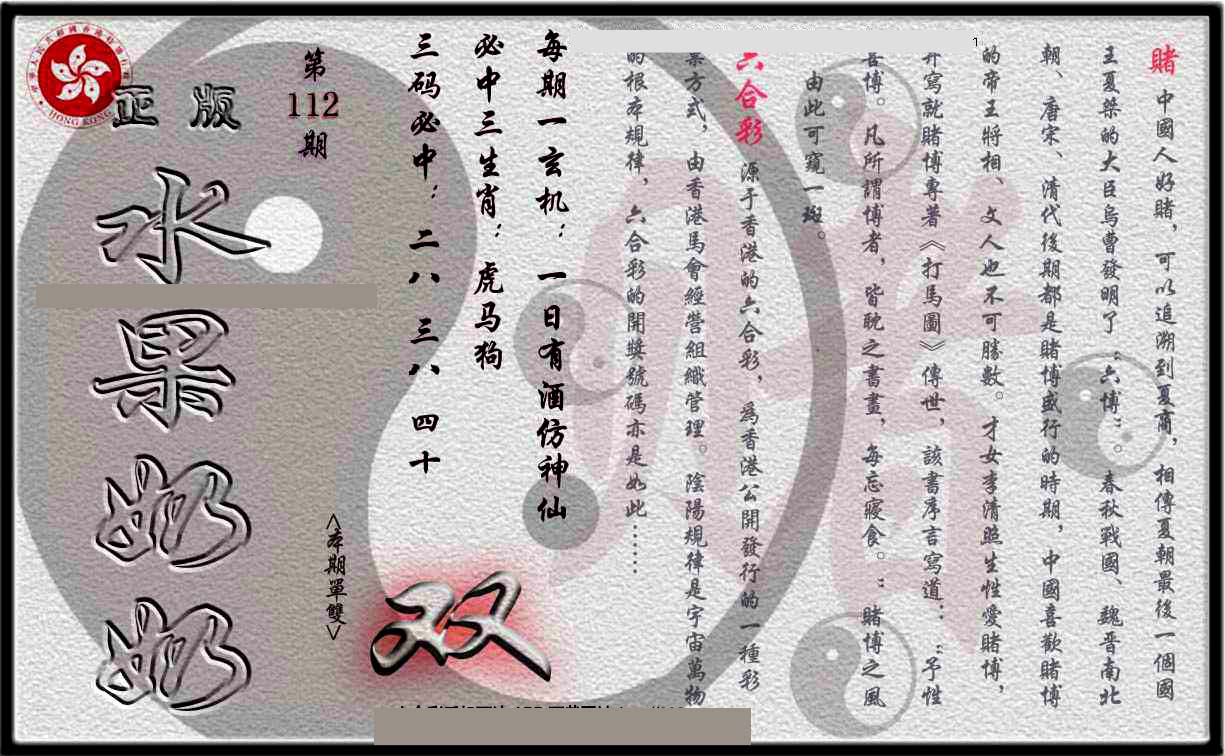 賭 中國人好賭，可以追溯到夏商，相傳夏朝最後一個國
王夏桀的大臣烏曹發明了“六博”。春秋戰國、魏晋南北
朝、唐宋、清代後期都是賭博盛行的時期，中國喜歡賭博
的帝王將相、文人也不可勝數。才女李清照生性愛賭博，
并寫就賭博專著《打馬圖》傳世，該書序言寫道：“予性
喜博。凡所謂博者，皆耽之書畫，每忘寢食。”賭博之風
由此可窺一斑。
六合彩 源于香港的六合彩，爲香港公開發行的一種彩
票方式，由香港馬會經營組織管理。陰陽規律是宇宙萬物
的根本規律，六合彩的開獎號碼亦是如此……
每期一玄机：一日有酒仿神仙
必中三生肖：虎马狗
三码必中：二八 三八 四十
第112期
<本期單雙>
双
正版
水果奶奶
HONG KONG